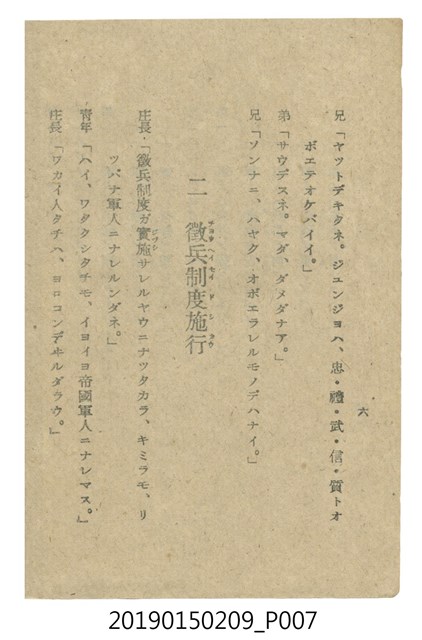 六
兄「ヤットデキタネ。ジュンジョハ、忠・禮・武・信・質トオ
ボエテオケバイイ。」
弟「サウデスネ。マダ、ダメダナア。」
兄「ソンナニ、ハヤク、オボエラレルモノデハナイ。」
二 徵兵制度施行
庄長・「徵兵制度ガ實施サレルヤウニナッタカラ、キミラモ、リ
ッパナ軍人ニナレルンダネ。」
靑年「ハイ、ワタクシタチモ、イヨイヨ帝國軍人ニナレマス。」
庄長「ワカイ人タチハ、ヨロコンデヰルダラウ。」
20190150209_P007